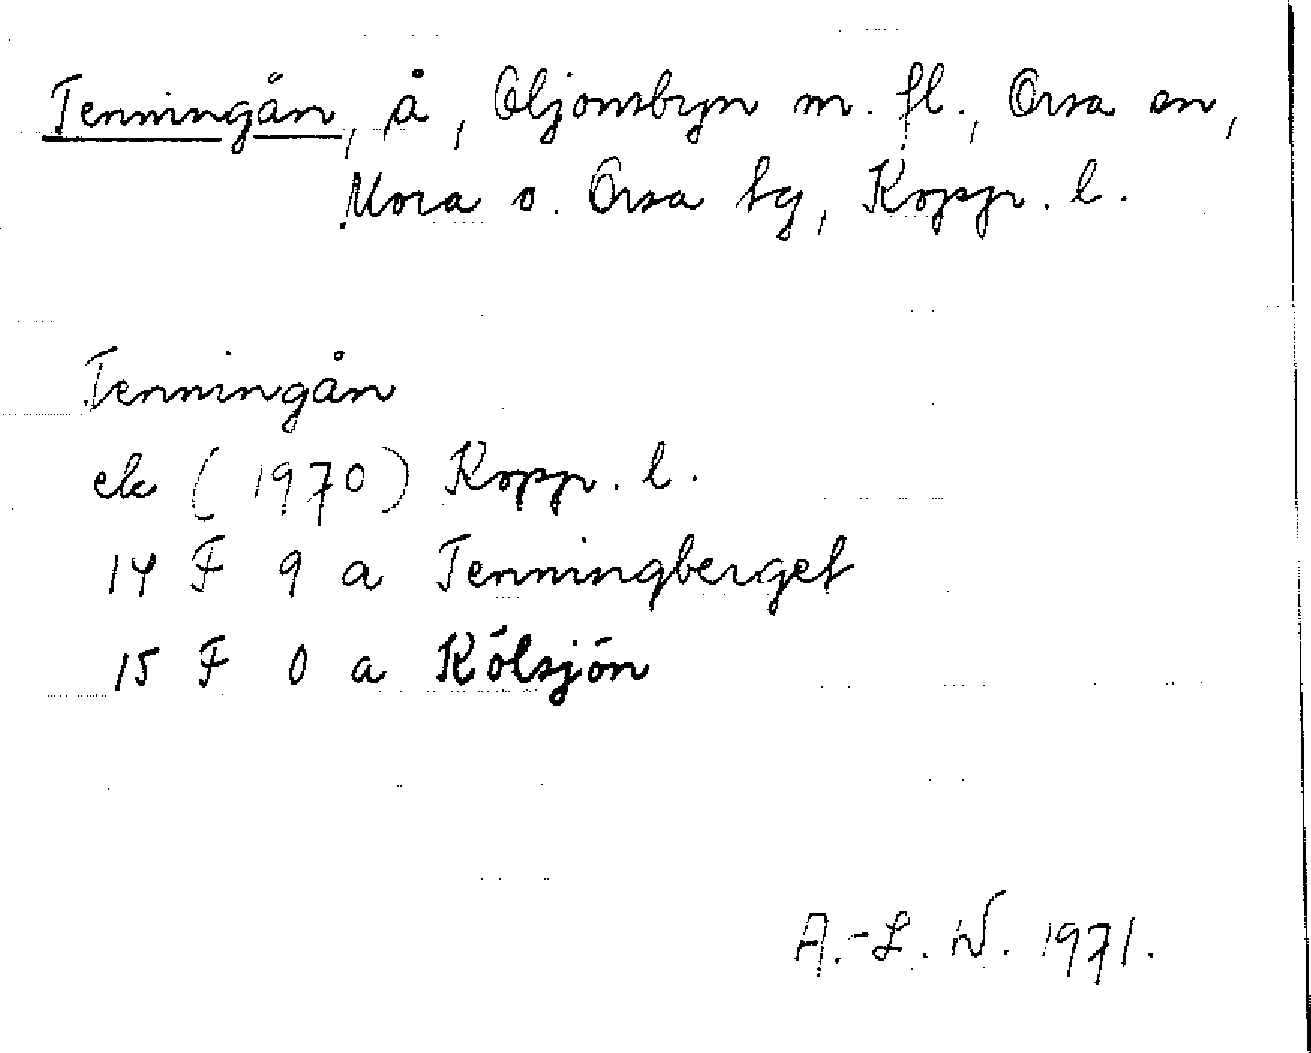 Tenningån, å, Oljonsbyn m. fl., Orsa sn,
Mora o. Orsa tg, Kopp. l.
Tenningån
ek (1970) Kopp. l.
14 F 9 a Tenningberget
15 F 0 a Kölsjön
A.-L. W. 1971.